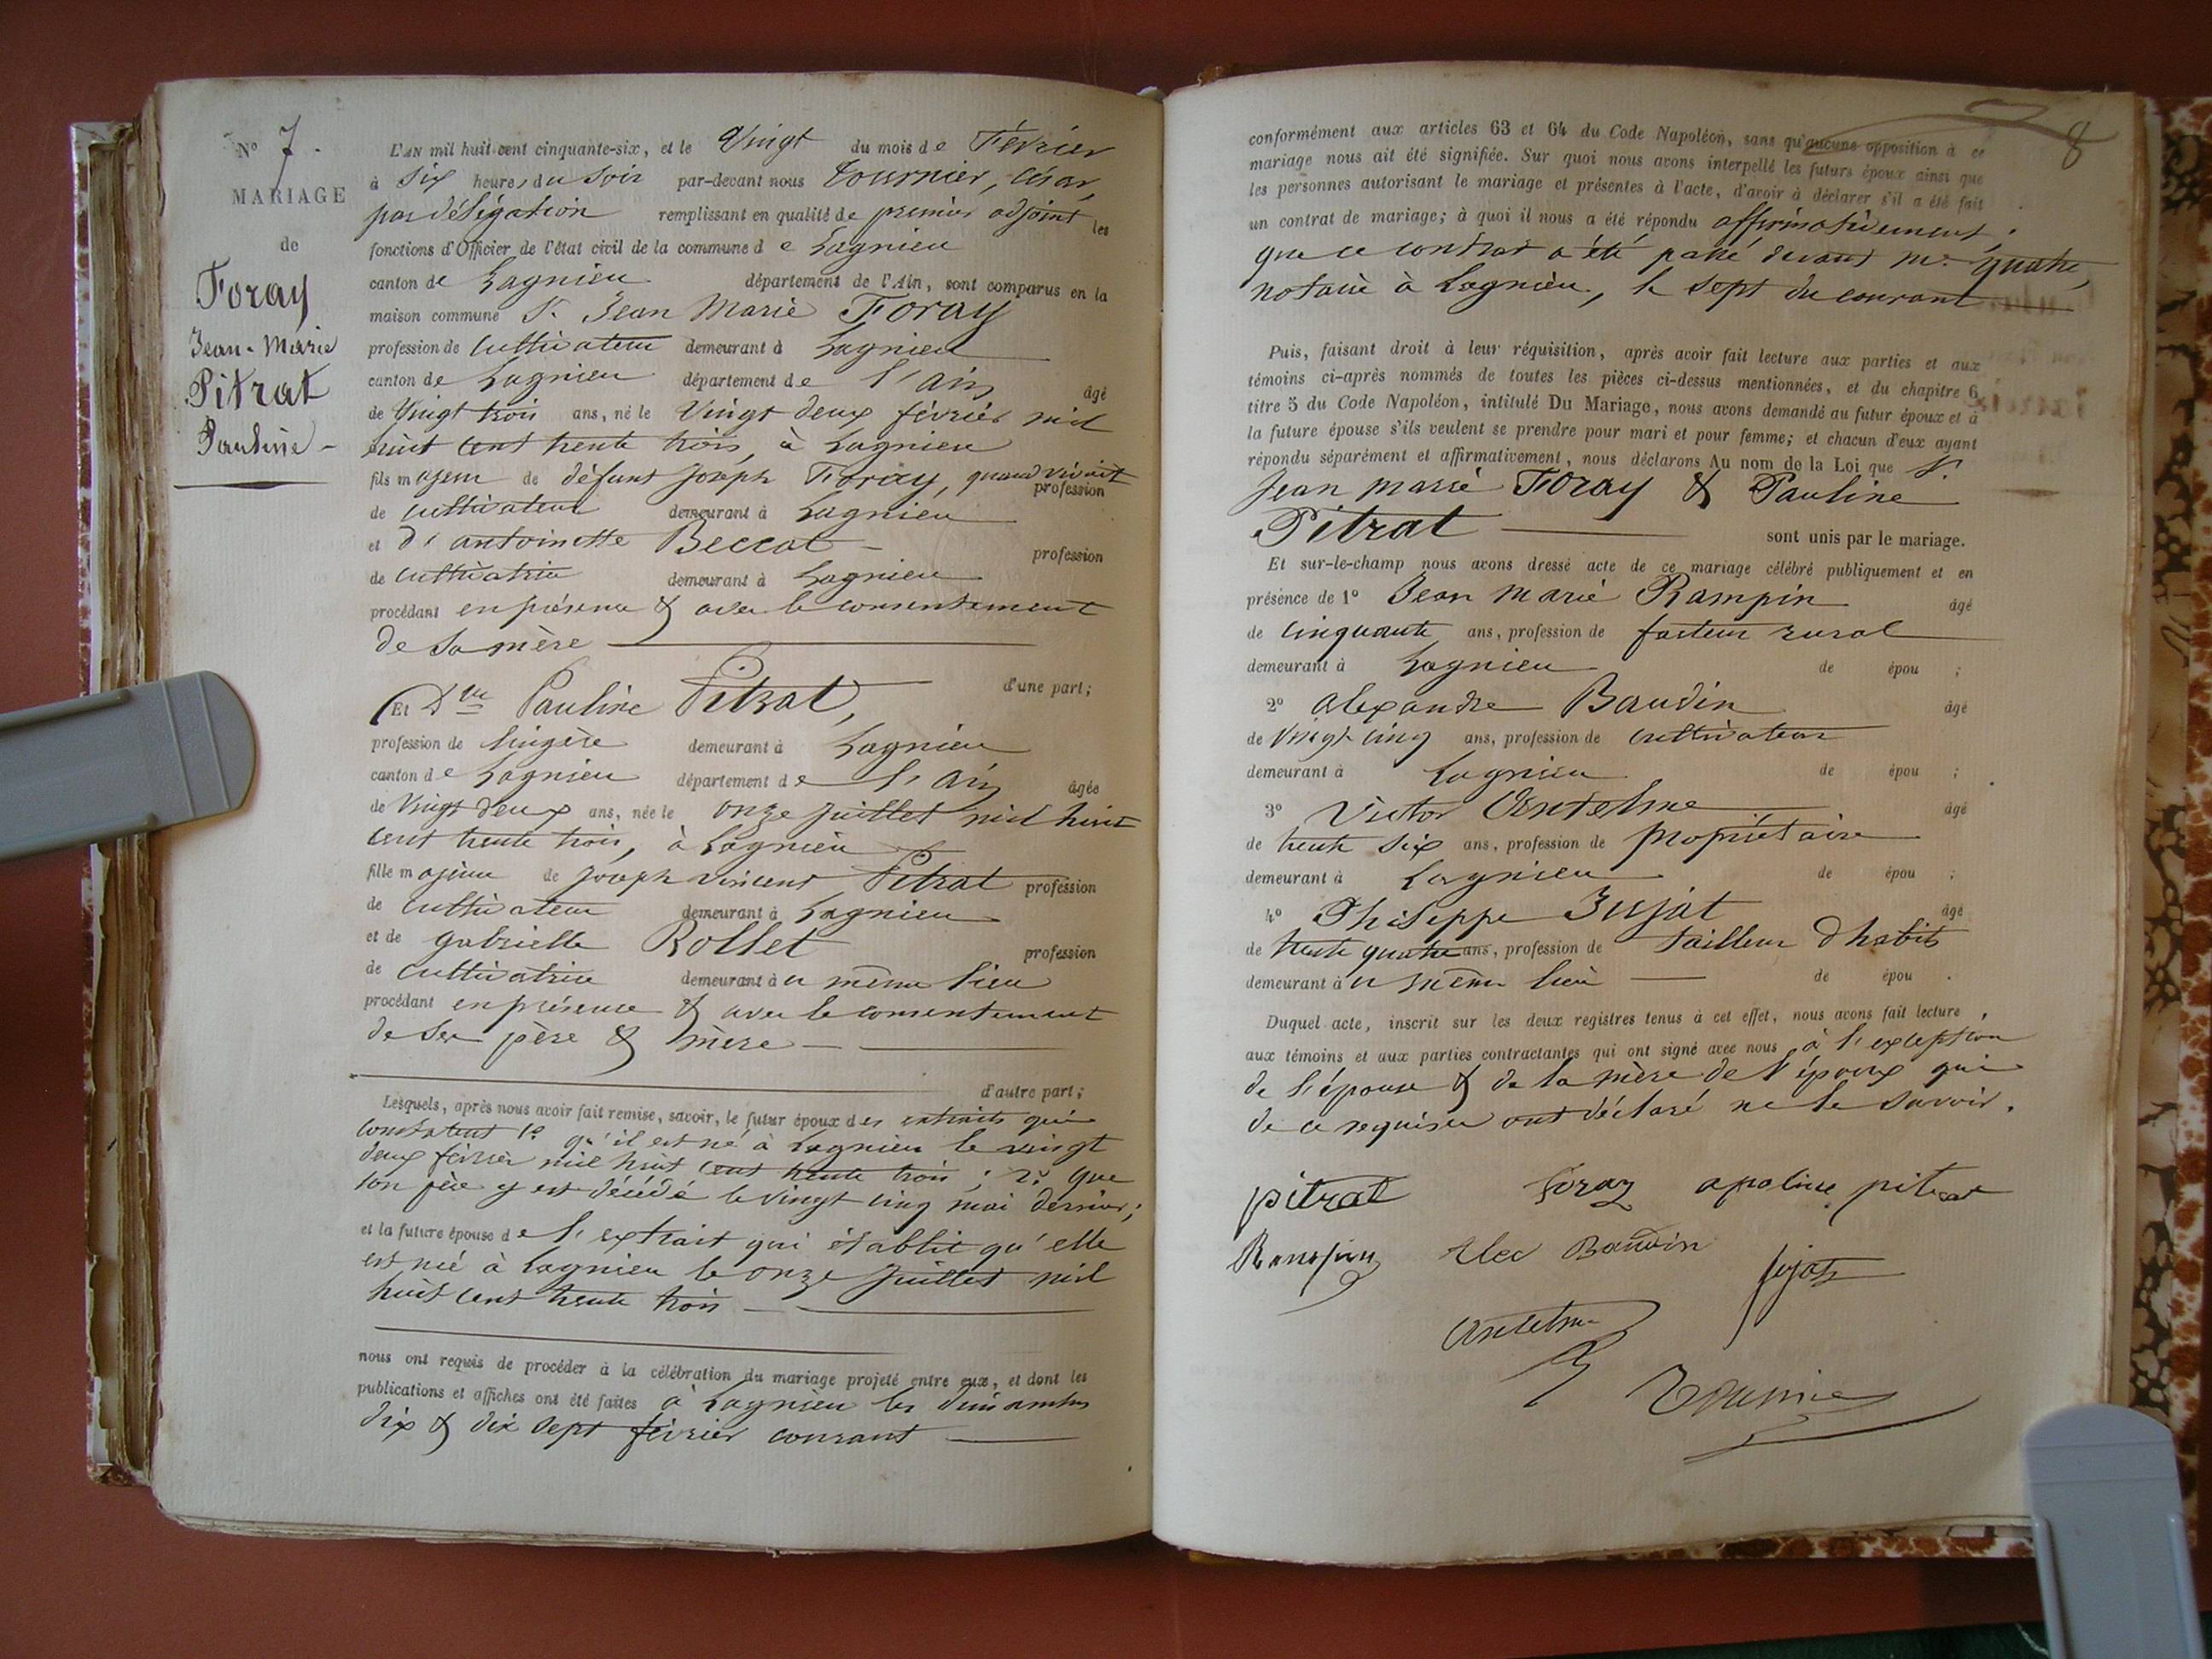 N° 7.
MARIAGE
de
Foray
Jean-Marie
Pitrat
Pauline -
L'AN mil huit cent cinquante-six, et le Vingt du mois de Février
à Six heures du Soir par-devant nous Tournier, César,
par délégation remplissant en qualité de premier adjoint les
fonctions d'Officier de l'état civil de la commune de Lagnieu
canton de Lagnieu département de l'Ain, sont comparus en la
maison commune S. Jean Marie Foray
profession de Cultivateur demeurant à Lagnieu
canton de Lagnieu département de l'Ain âgé
de Vingt trois ans, né le Vingt deux février mil
huit cent trente trois, à Lagnieu
fils majeur de défunt Joseph Foray, quand vivait profession
de cultivateur demeurant à Lagnieu
et d'antoinette Beccat profession
de Cultivatrice demeurant à Lagnieu
procédant en présence & avec le consentement
de Sa mère
d'une part;
Et Dlle Pauline Pitrat,
profession de lingère demeurant à Lagnieu
canton de Lagnieu département de l'Ain âgée
de Vingt deux ans, née le onze juillet mil huit
cent trente trois, à Lagnieu
fille majeure de joseph vincent Pitrat profession
de cultivateur demeurant à Lagnieu
et de gabrielle Rollet profession
de cultivatrice demeurant au même lieu
procédant en présence & avec le consentement
de Ses père & mère
d'autre part;
Lesquels, après nous avoir fait remise, savoir, le futur époux des extraits qui
constatent 1° qu'il est né à Lagnieu le vingt
deux février mil huit cent trente trois; 2° que
son père y est décédé le vingt cinq mai dernier;
et la future épouse de l'extrait qui établit qu'elle
est née à Lagnieu le onze juillet mil
huit cent trente trois
nous ont requis de procéder à la célébration du mariage projeté entre eux, et dont les
publications et affiches ont été faites à Lagnieu les dimanches
dix & dix sept février courant
8
conformément aux articles 63 et 64 du Code Napoléon, sans qu'aucune opposition à ce
mariage nous ait été signifiée. Sur quoi nous avons interpellé les futurs époux ainsi que
les personnes autorisant le mariage et présentes à l'acte, d'avoir à déclarer s'il a été fait
un contrat de mariage; à quoi il nous a été répondu affirmativement,
que ce contrat a été passé devant Me quatre,
notaire à Lagnieu, le sept du courant
Puis, faisant droit à leur réquisition, après avoir fait lecture aux parties et aux
témoins ci-après nommés de toutes les pièces ci-dessus mentionnées, et du chapitre 6,
titre 5 du Code Napoléon, intitulé Du Mariage, nous avons demandé au futur époux et à
la future épouse s'ils veulent se prendre pour mari et pour femme; et chacun d'eux ayant
répondu séparément et affirmativement, nous déclarons Au nom de la Loi que S.
Jean Marie Foray & Pauline
Pitrat sont unis par le mariage.
Et sur-le-champ nous avons dressé acte de ce mariage célébré publiquement et en
présence de 1° Jean Marie Rampin âgé
de cinquante ans, profession de facteur rural
demeurant à Lagnieu de épou ;
2° alexandre Baudin âgé
de Vingt cinq ans, profession de cultivateur
demeurant à Lagnieu de épou ;
3° Victor Antelme âgé
de trente Six ans, profession de propriétaire
demeurant à Lagnieu de épou ;
4° Philippe Jujat âgé
de trente quatre ans, profession de tailleur d'habits
demeurant au même lieu de épou .
Duquel acte, inscrit sur les deux registres tenus à cet effet, nous avons fait lecture
aux témoins et aux parties contractantes qui ont signé avec nous, à l'exception
de l'épouse & de la mère de l'époux qui
de ce requises ont déclaré ne le Savoir.
pitrat foray apoline pitrat
Rampin Alex Baudin jujat
Antelme
Tournier